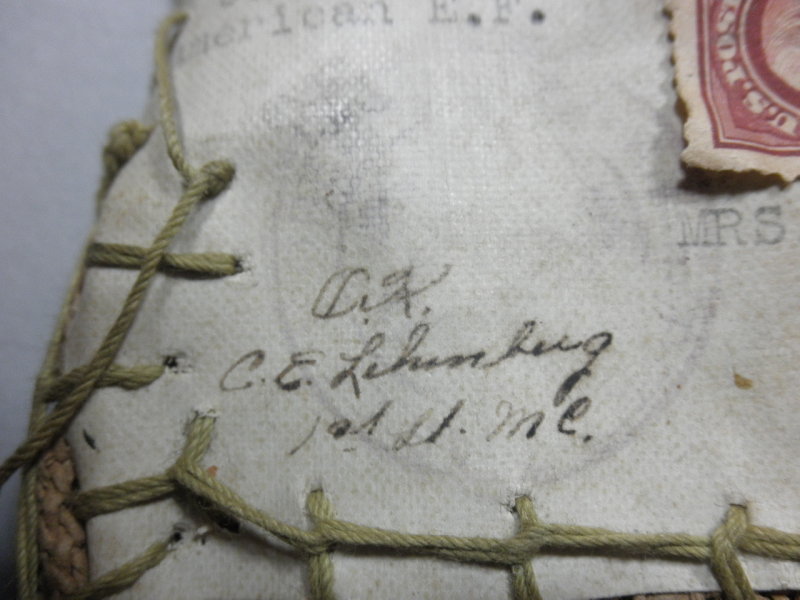 American E.F.
U.S. POST
MRS
O.K.
C. E. Lehmberg
1st Lt. M C.